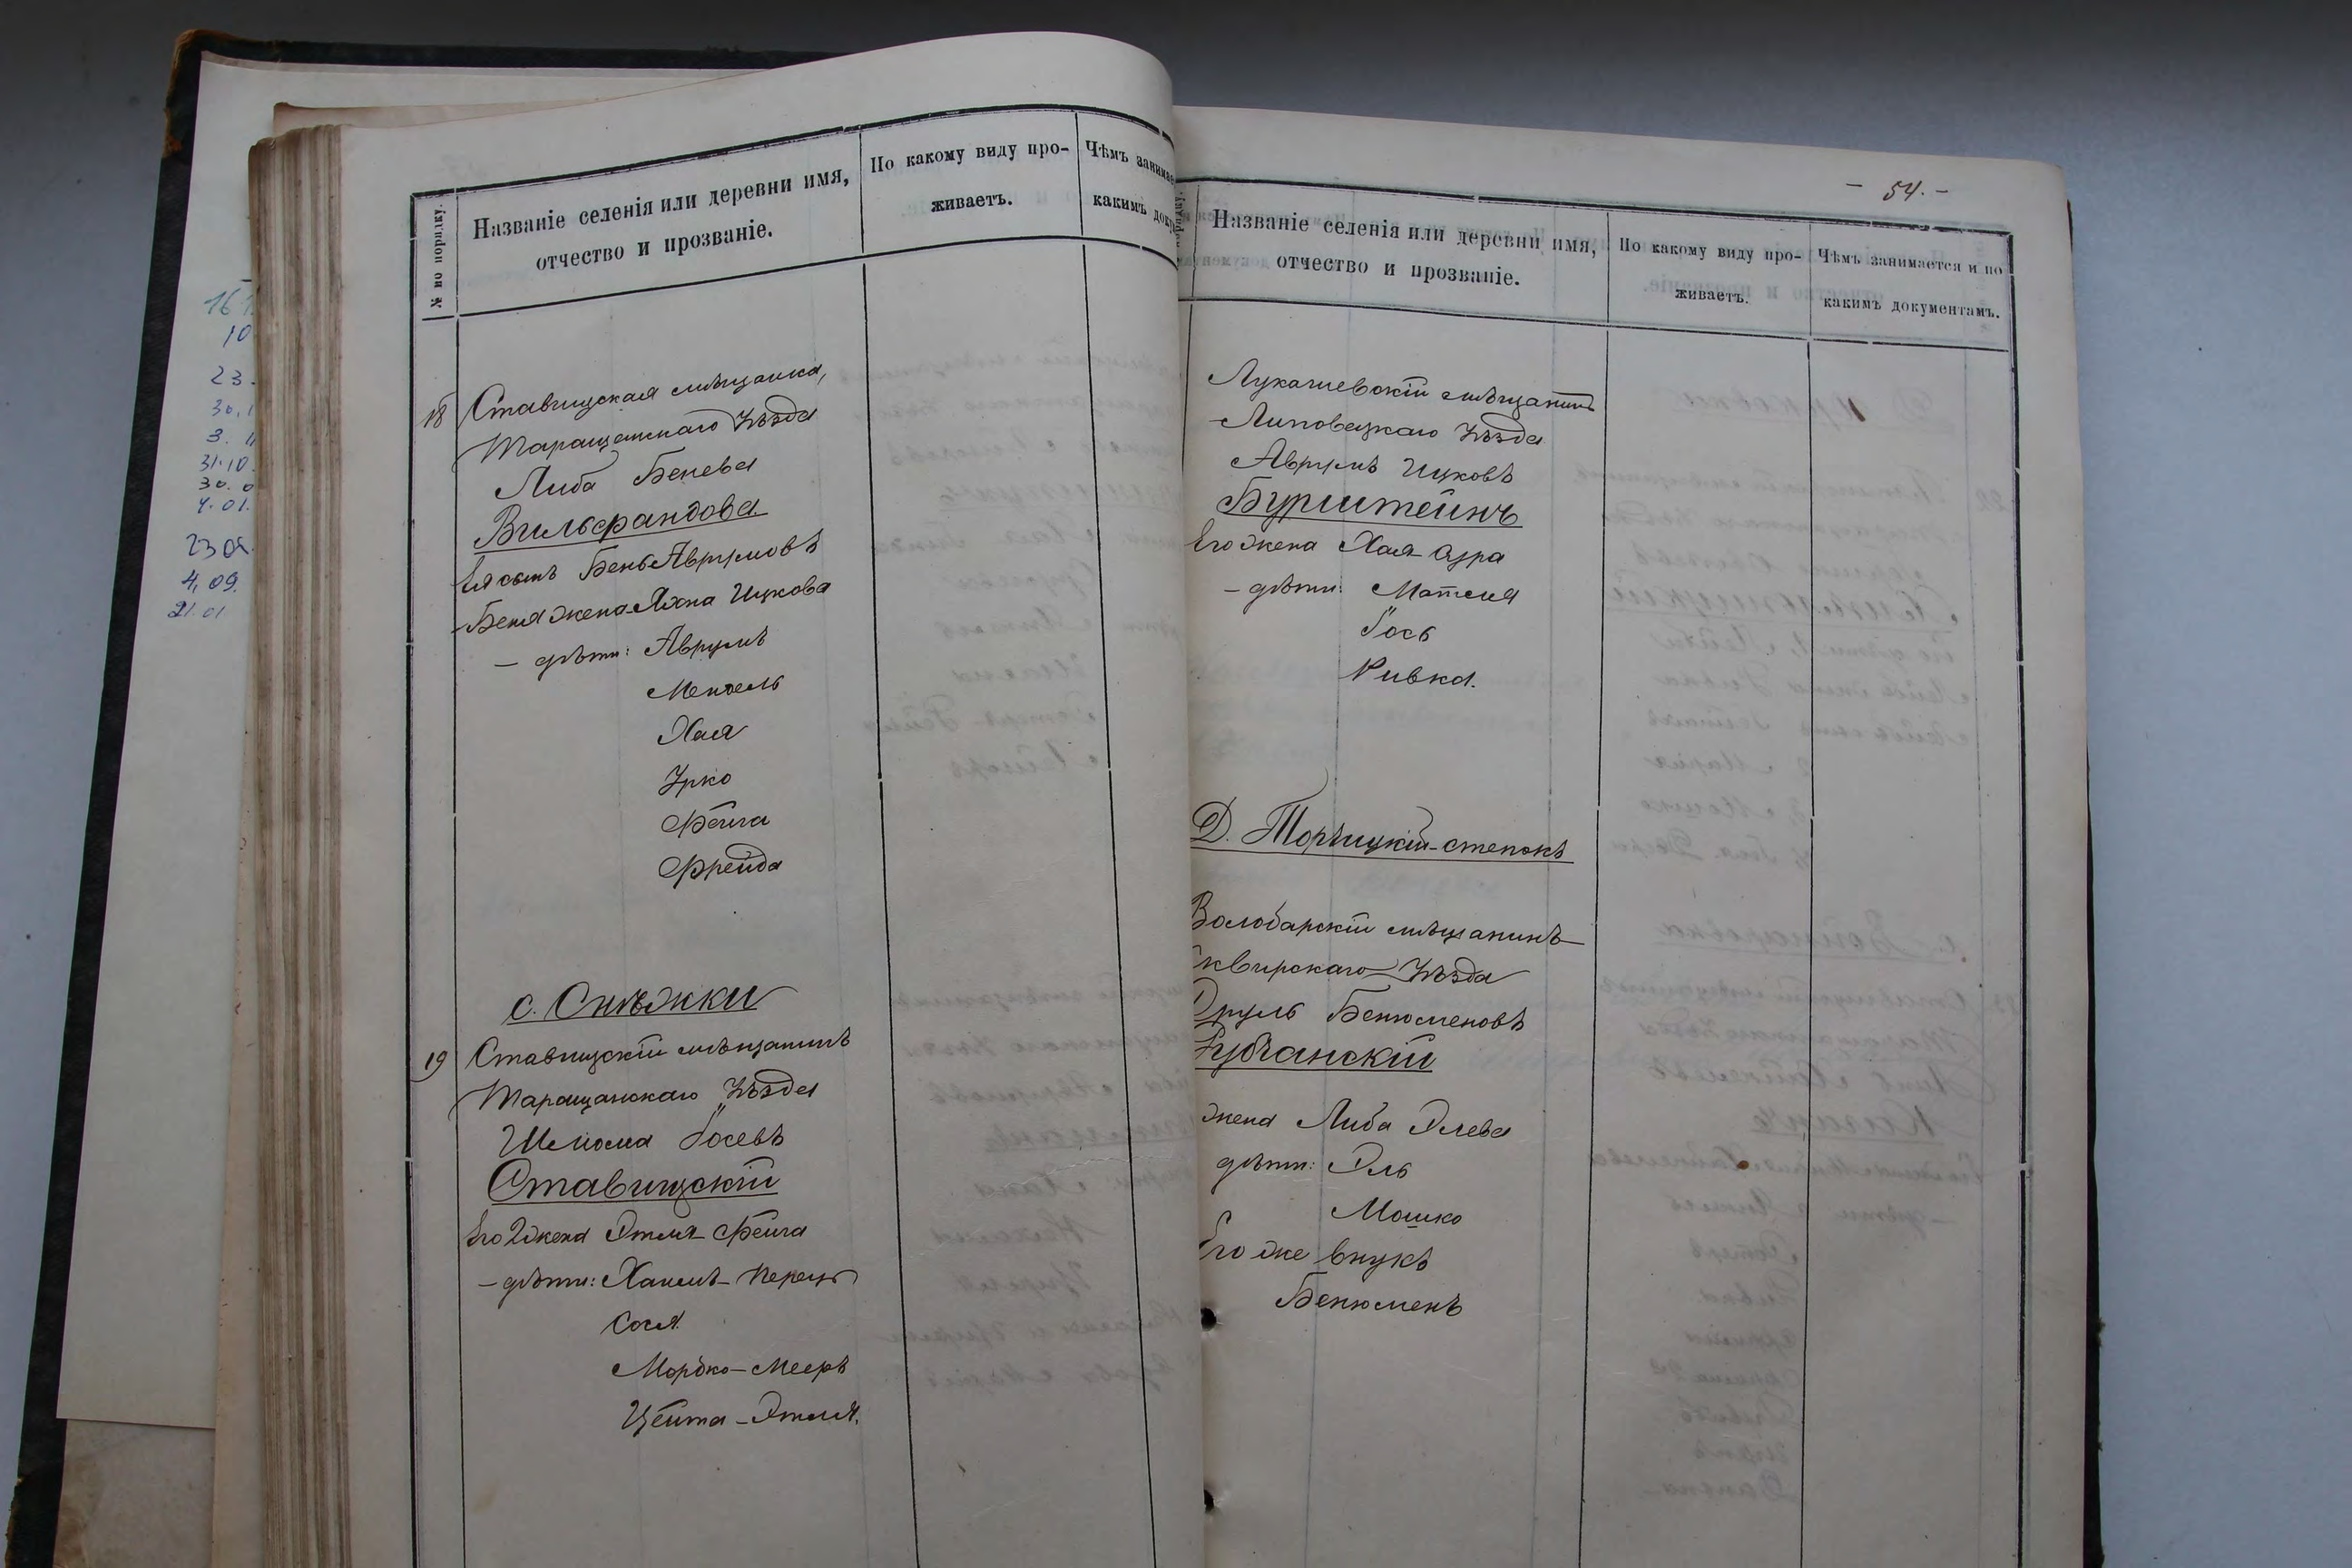 № по порядку.
Названіе селенія или деревни имя,
отчество и прозваніе.
По какому виду про-
живаетъ.
Чѣмъ занимае
какимъ доку
16
10
23.
30.1
3. 11
31.10.
30. 0
4. 01.
23 09.
4. 09.
21. 01
18 Ставищская мѣщанка,
Таращанскаго Уѣзда
Либа Бенева
Вильфандова
Ея сынъ Бень Аврумовъ
Беня жена Яхна Ицкова
— дѣти: Аврумъ
Мендель
Хая
Урко
Фейга
Фрейда
с. Снѣжки
19 Ставищскій мѣщанинъ
Таращанскаго Уѣзда
Шлиома Іосевъ
Ставищскій
Его жена Этля-Фейга
— дѣти: Хаимъ-Перецъ
Сося
Мордко-Мееръ
Цейта-Этля.
- 54. -
Названіе селенія или деревни имя,
отчество и прозваніе.
По какому виду про-
живаетъ.
Чѣмъ занимается и по
какимъ документамъ.
Лукашевскій мѣщанинъ
Липовецкаго Уѣзда
Аврумъ Ицковъ
Бурштейнъ
Его жена Хая-Сура
— дѣти: Матля
Іось
Ривка.
Д. Торчицкій-степокъ
Володарскій мѣщанинъ
Сквирскаго Уѣзда
Сруль Бенюменовъ
жена Либа Элева
дѣти: Эль
Мошко
Его же внукъ
Бенюменъ